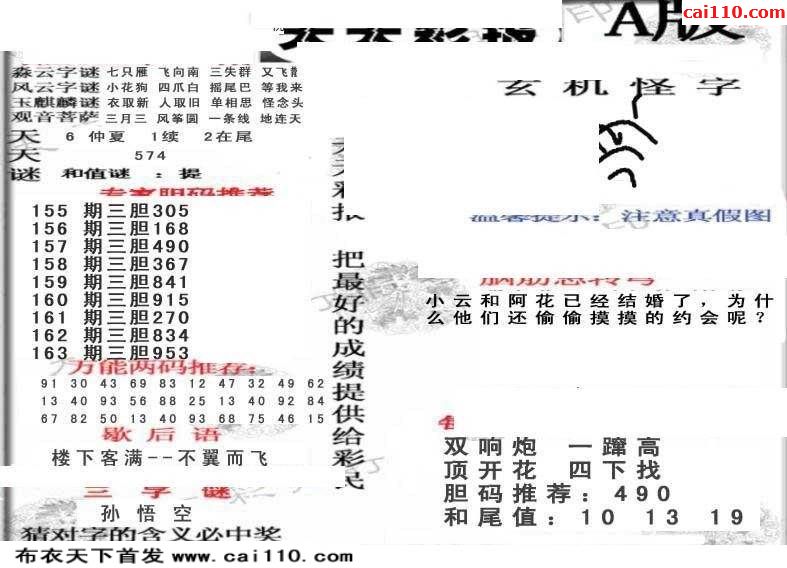 cai110.com
A版
淼云字谜 七只雁 飞向南 三失群 又飞
风云字谜 小花狗 四爪白 摇尾巴 等我来
玉麒麟谜 衣取新 人取旧 单相思 怪念头
观音菩萨 三月三 风筝圆 一条线 地连天
天 6 仲夏 1续 2在尾
天 574
谜 和值谜 ：提
专家胆码推荐
155 期三胆305
156 期三胆168
157 期三胆490
158 期三胆367
159 期三胆841
160 期三胆915
161 期三胆270
162 期三胆834
163 期三胆953
万能两码推荐:
91 30 43 69 83 12 47 32 49 62
13 40 93 56 88 25 13 40 92 84
67 82 50 13 40 93 68 75 46 15
歇后语
楼下客满--不翼而飞
三字谜
孙悟空
猜对字的含义必中奖
天天彩报
把最好的成绩提供给彩民
玄机怪字
温馨提示：注意真假图
脑筋急转弯
小云和阿花已经结婚了，为什
么他们还偷偷摸摸的约会呢？
双响炮 一蹿高
顶开花 四下找
胆码推荐：490
和尾值：10 13 19
布衣天下首发 www.cai110.com